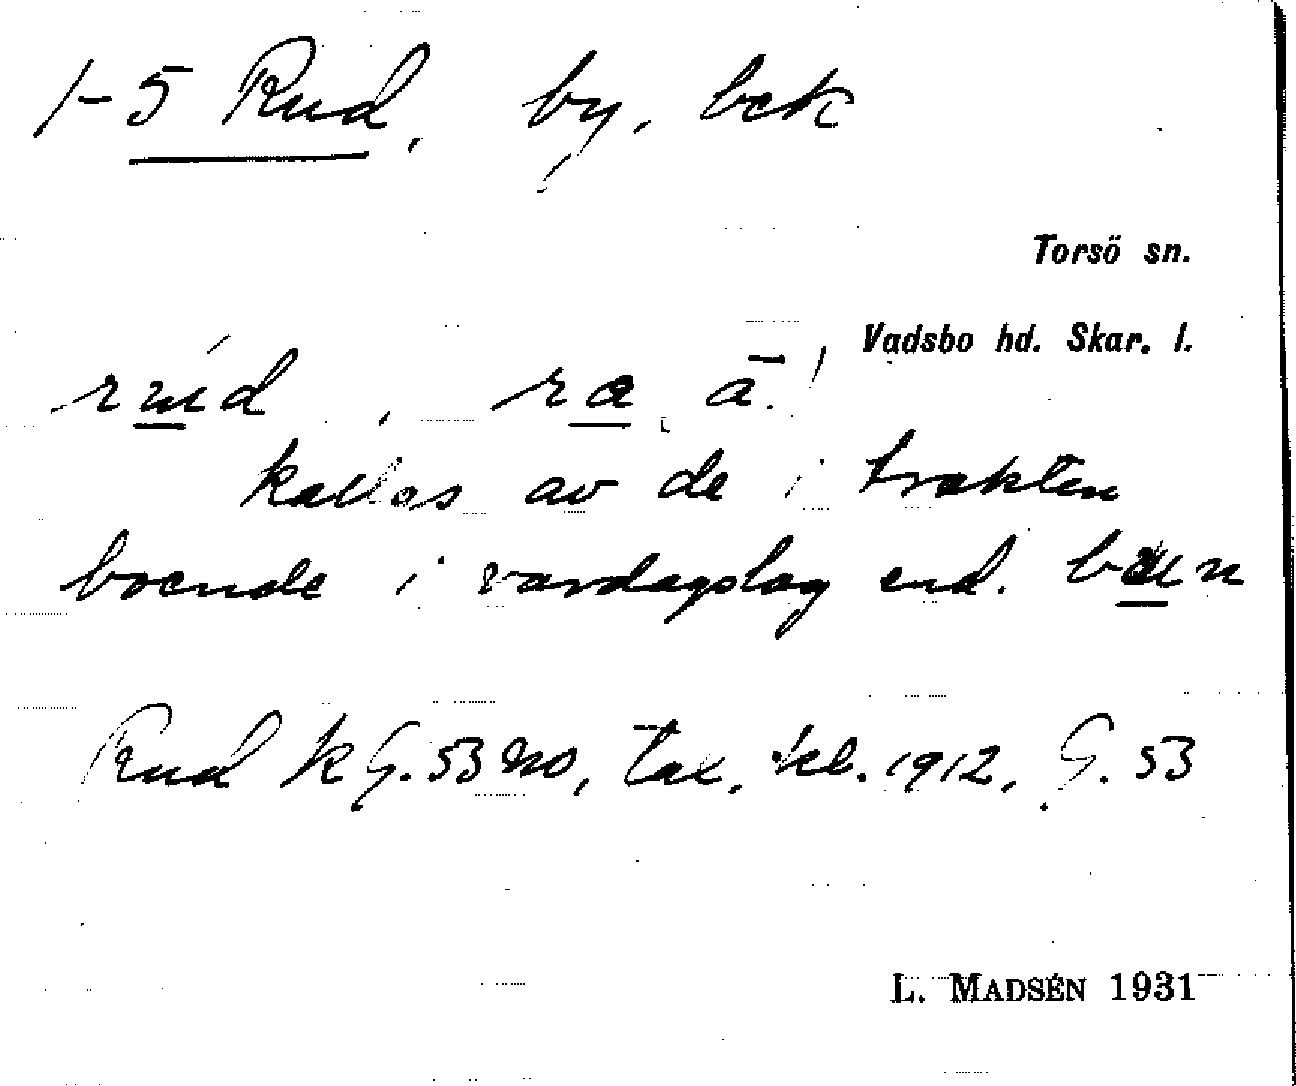 1-5 Rud, by, bck
Torsö sn.
Vadsbo hd. Skar. l.
kallas av de i trakten
boende i vardagslag end.
Rud K G. 53 NO, Tax. kl. 1912, G. 53
L. MADSÉN 1931